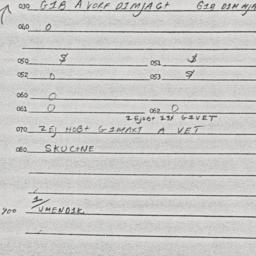 030 G1B A VORF D1MJAGT G1B D1M MJA
060 0
050 $ 051 $
052 0 053 $
060 0
061 0 062 0
2EJOBT 23X G1VET
070 2EJ HOBT G1MAKT A VET
080 SKUCTNE
900 1/UMEND1K